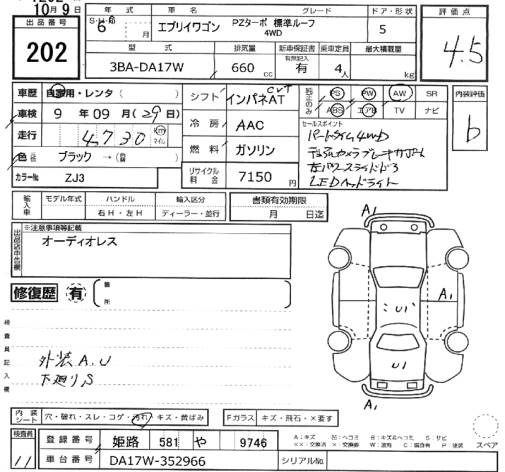 10月9日
出品番号
202
年式 車名 グレード ドア・形状 評価点
6 月 エブリイワゴン PZターボ 標準ルーフ 4WD 5 4.5
型式 排気量 新車保証書 乗車定員 最大積載量
有無記入
3BA-DA17W 660cc 有 4人 kg
車歴 自家用・レンタ シフト インパネAT CVT PS PW AW SR 内装評価
車検 9年09月(29日) 冷房 AAC ABS エアB TV ナビ b
走行 4730 km マイル 燃料 ガソリン セールスポイント
パートタイム4WD
色 ブラック→ デュアルカメラブレーキサポート
カラーNo ZJ3 リサイクル料金 7150円 左パワースライドドア
LEDヘッドライト
輸入車 モデル年式 ハンドル 輸入区分 書類有効期限
右H・左H ディーラー・並行 月 日迄
出品店申告欄 ※注意事項等記載
オーディオレス
修復歴 有 箇所
A1
A1
U1
U1
A1
検査員記入欄
外装A.U
下廻りS
内装シート 穴・破れ・スレ・コゲ・汚れ・キズ・黄ばみ Fガラス キズ・飛石・×要す
検査員 11
登録番号 姫路 581 や 9746
車台番号 DA17W-352966 シリアルNo.
A:キズ U:凹ミ B:キズ&ヘコミ S:サビ
××:交換済 ×:交換要 W:波有 C:腐食有 P:塗装 スペア